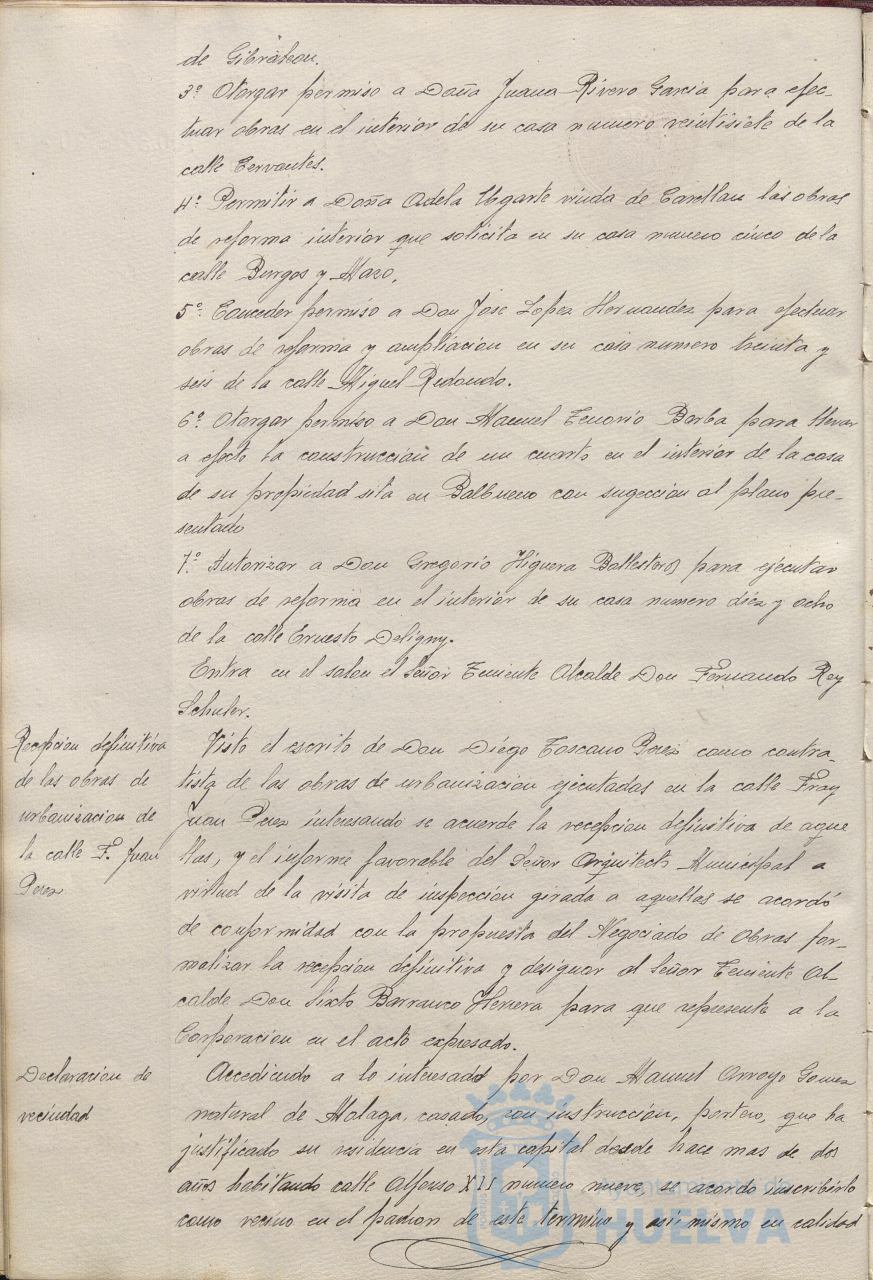 de Gibraleon.
3º Otorgar permiso a Doña Juana Rivero Garcia para efec-
tuar obras en el interior de su casa numero veintisiete de la
calle Cervantes.
4º Permitir a Doña Adela Ugarte viuda de Carellan las obras
de reforma interior que solicita en su casa numero cinco de la
calle Burgos y Mazo.
5º Conceder permiso a Don Jose Lopez Hernandez para efectuar
obras de reforma y ampliacion en su casa numero treinta y
seis de la calle Miguel Redondo.
6º Otorgar permiso a Don Manuel Tenorio Barba para llevar
a efecto la construccion de un cuarto en el interior de la casa
de su propiedad sita en Balbueno con sugeccion al plano pre-
sentado
7º Autorizar a Don Gregorio Higuera Ballesteros para ejecutar
obras de reforma en el interior de su casa numero diez y ocho
de la calle Ernesto Deligny.
Entra en el salon el Señor Teniente Alcalde Don Fernando Rey
Schuler.
Recepcion definitiva
de las obras de
urbanizacion de
la calle F. Juan
Perez
Visto el escrito de Don Diego Toscano Perez como contra-
tista de las obras de urbanizacion ejecutadas en la calle Fray
Juan Perez interesando se acuerde la recepcion definitiva de aque
llas, y el informe favorable del Señor Arquitecto Municipal a
virtud de la visita de inspeccion girada a aquellas se acordó
de conformidad con la propuesta del Negociado de Obras for-
malizar la recepcion definitiva y designar al Señor Teniente Al-
calde Don Sixto Barranco Herrera para que represente a la
Corporacion en el acto expresado.
Declaracion de
vecindad
Accediendo a lo interesado por Don Manuel Arroyo Gomez
natural de Malaga, casado, con instruccion, portero, que ha
justificado su residencia en esta capital desde hace mas de dos
años habitando calle Alfonso XII numero nueve se acordo inscribirlo
como vecino en el padron de este termino y asi mismo en calidad
Ayuntamiento de
HUELVA